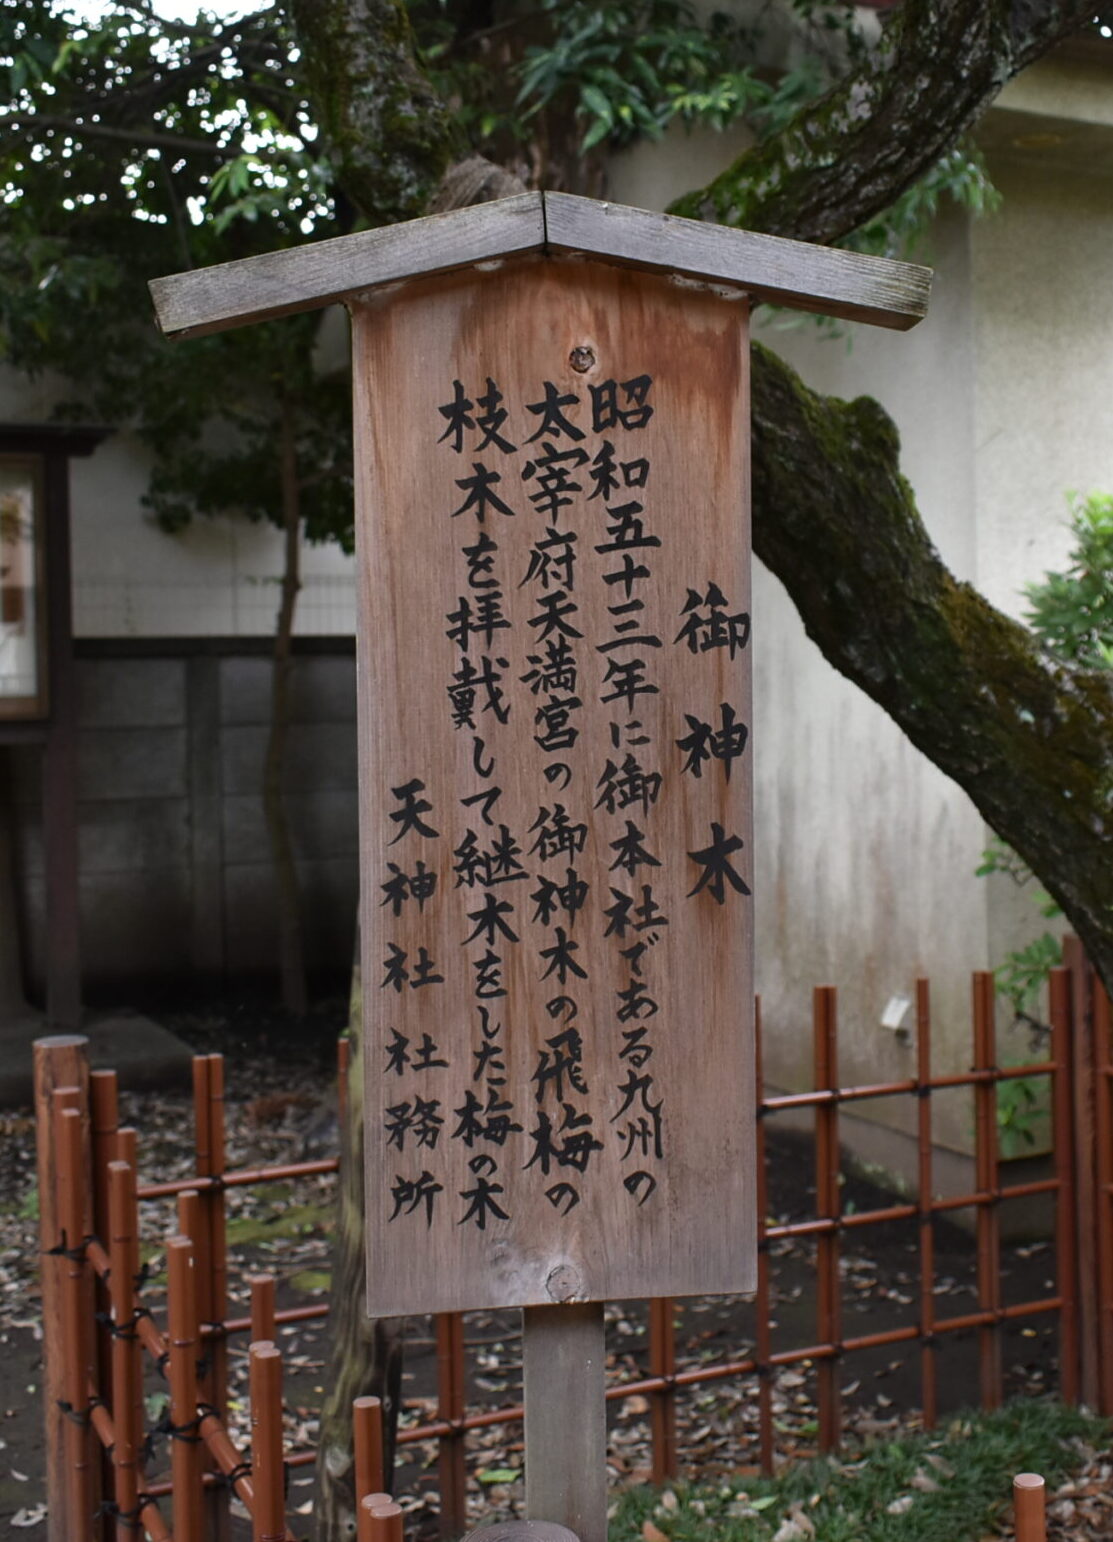 御神木
昭和五十三年に御本社である九州の
太宰府天満宮の御神木の飛梅の
枝木を拝戴して継木をした梅の木
天神社社務所